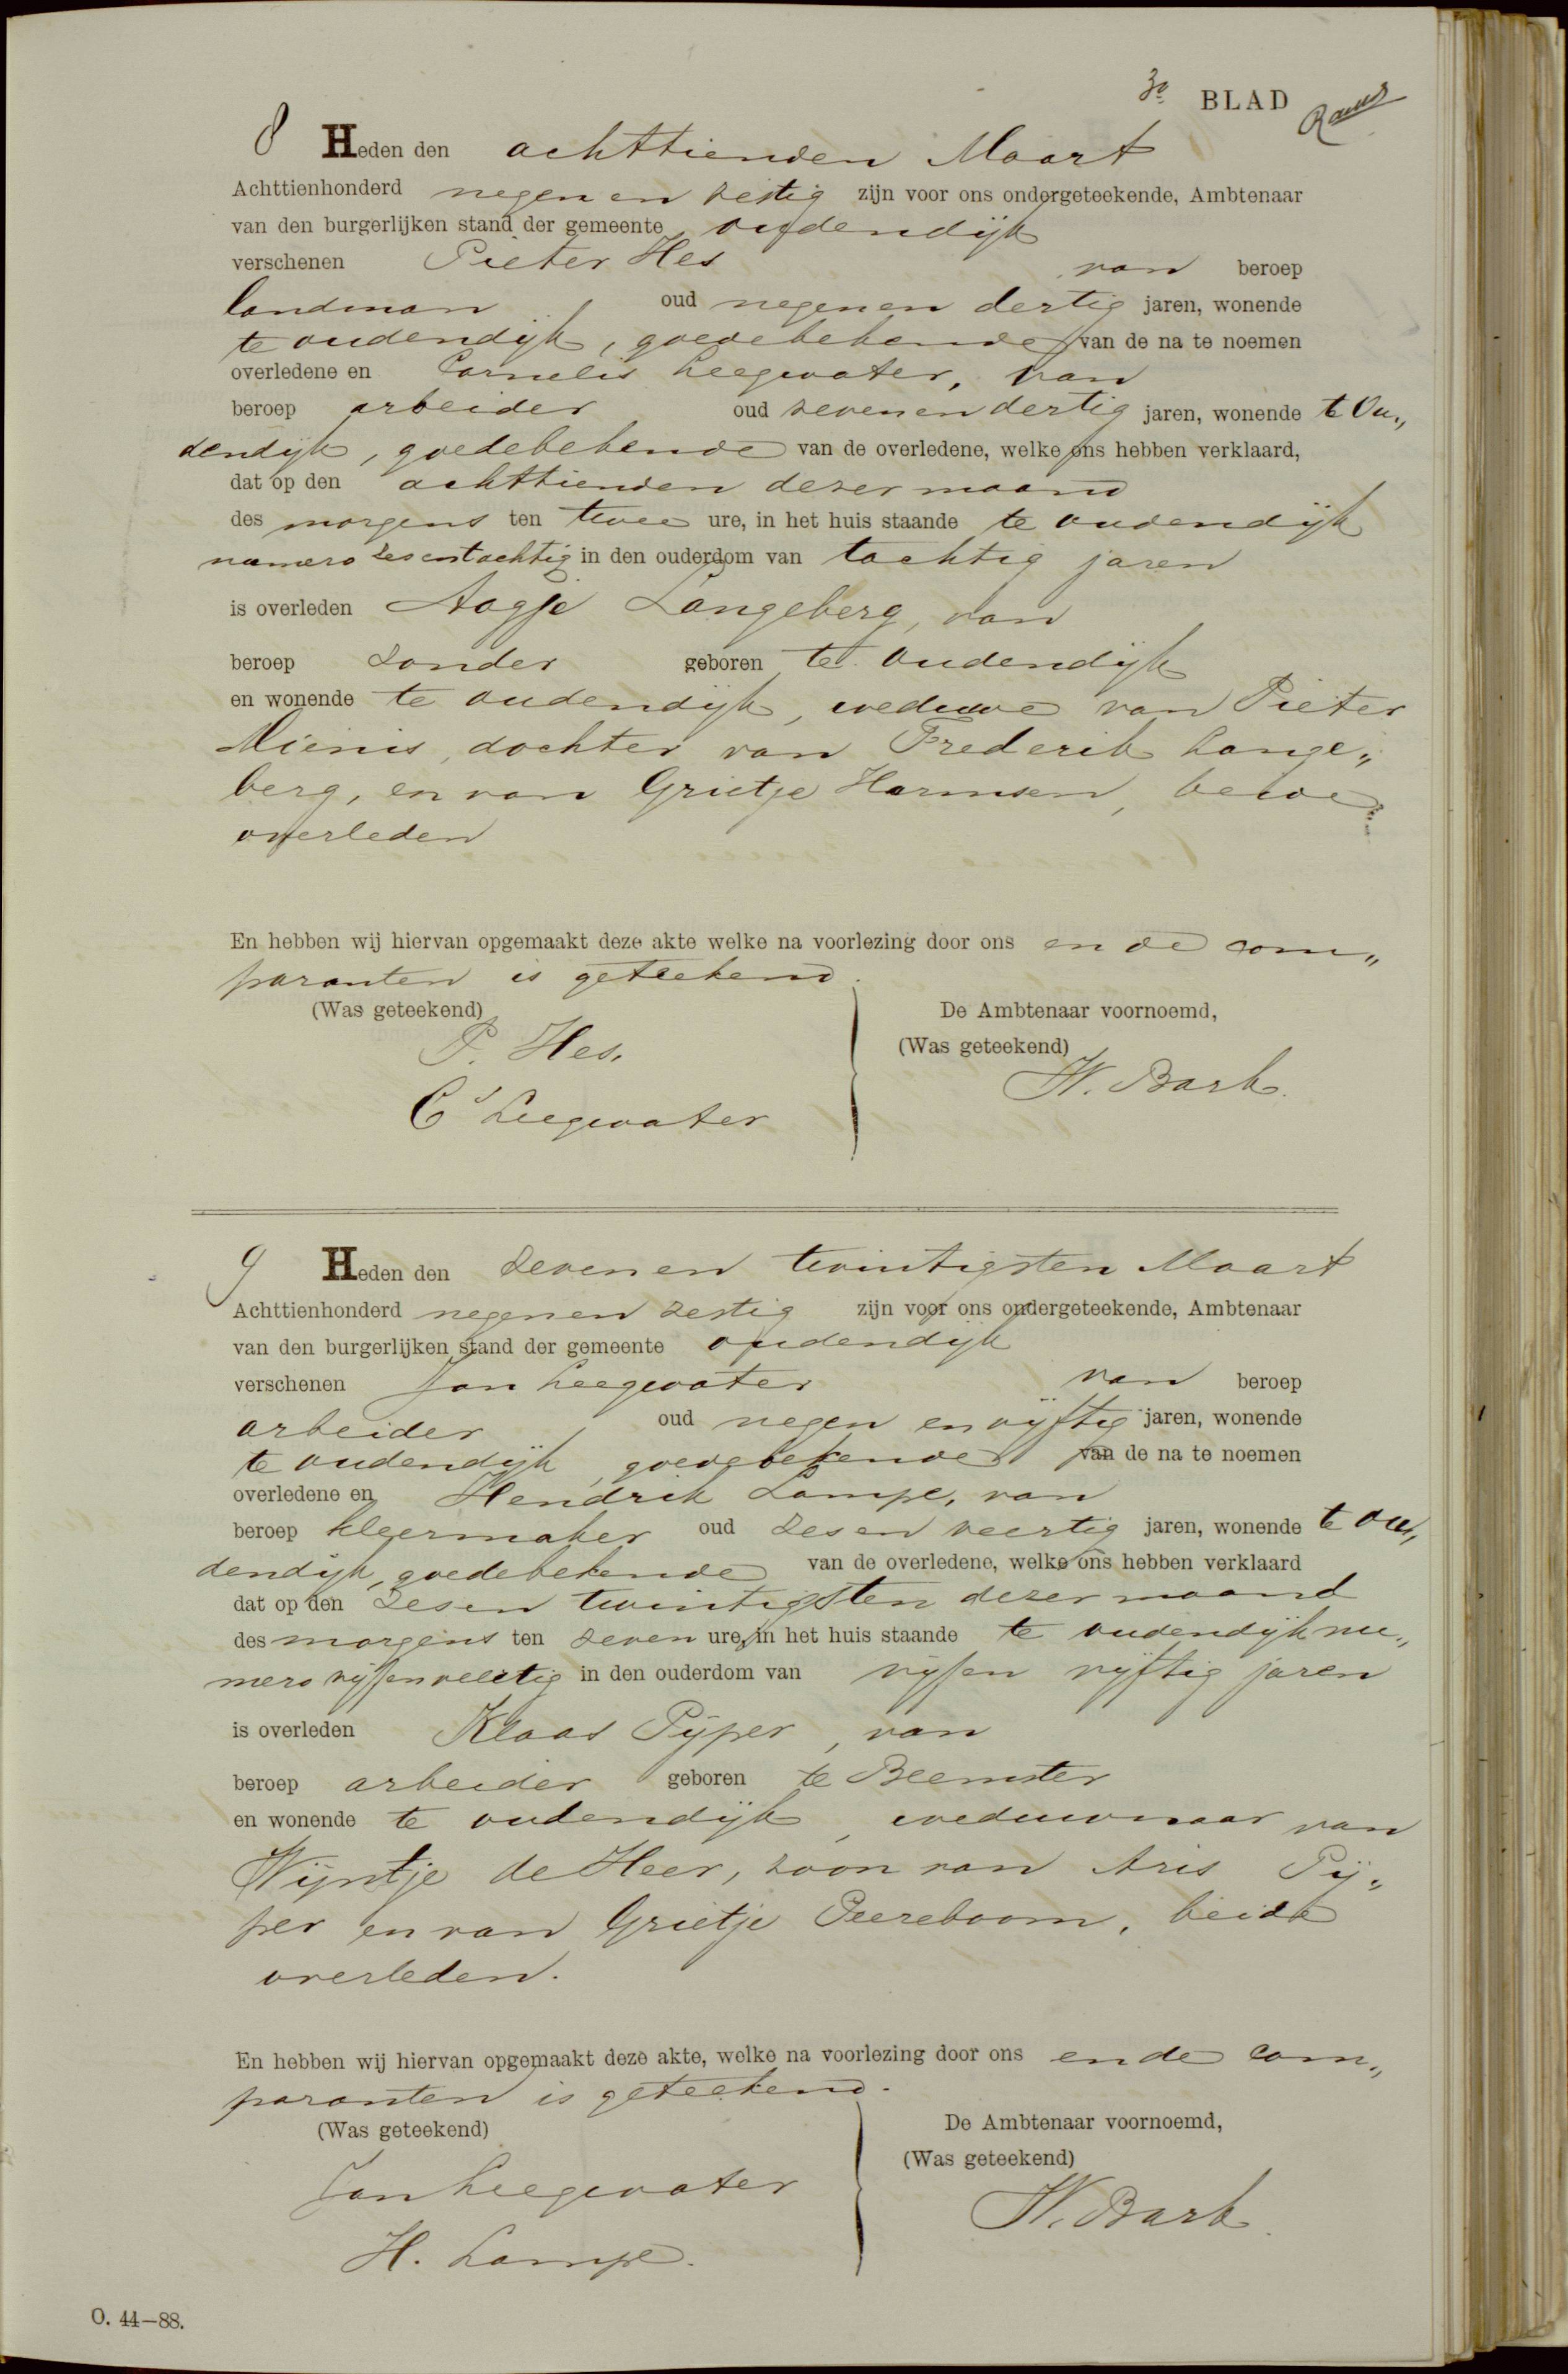 3e BLAD
8 Heden den achttienden Maart
Achttienhonderd negen en zestig zijn voor ons ondergeteekende, Ambtenaar
van den burgerlijken stand der gemeente oudendijk
verschenen Pieter Hes van beroep
landman oud negen en dertig jaren, wonende
te oudendijk, goedebekende van de na te noemen
overledene en Cornelis Leegwater, van
beroep arbeider oud zeven en dertig jaren, wonende te Ou„
dendijk, goedebekende van de overledene, welke ons hebben verklaard,
dat op den achttienden dezer maand
des morgens ten twee ure, in het huis staande te oudendijk
numero zesentachtig in den ouderdom van tachtig jaren
is overleden Aagje Langeberg, van
beroep zonder geboren te oudendijk
en wonende te oudendijk, weduwe van Pieter
Mienis, dochter van Frederik Lange„
berg, en van Grietje Harmsen, beide
overleden
En hebben wij hiervan opgemaakt deze akte welke na voorlezing door ons en de com„
paranten is geteekend.
(Was geteekend)
P. Hes.
Cs Leegwater
De Ambtenaar voornoemd,
(Was geteekend)
W. Bark.
9 Heden den zeven en twintigsten Maart
Achttienhonderd negen en zestig zijn voor ons ondergeteekende, Ambtenaar
van den burgerlijken stand der gemeente oudendijk
verschenen Jan Leegwater van beroep
arbeider, oud negen en vijftig jaren, wonende
te oudendijk, goedebekende van de na te noemen
overledene en Hendrik Lampe, van
beroep kleermaker oud zes en veertig jaren, wonende te ou„
dendijk, goedebekende van de overledene, welke ons hebben verklaard
dat op den zes en twintigsten dezer maand
des morgens ten zeven ure, in het huis staande te oudendijk nu„
mero vijfenveertig in den ouderdom van vijf en vijftig jaren
is overleden Klaas Pijper, van
beroep arbeider geboren te Beemster
en wonende te oudendijk, weduwnaar van
Wijntje de Heer, zoon van Aris Pij„
per en van Grietje Peereboom, beide
overleden.
En hebben wij hiervan opgemaakt deze akte, welke na voorlezing door ons en de com„
paranten is geteekend.
(Was geteekend)
Jan Leegwater
H. Lampe.
De Ambtenaar voornoemd,
(Was geteekend)
W. Bark.
O. 44—88.